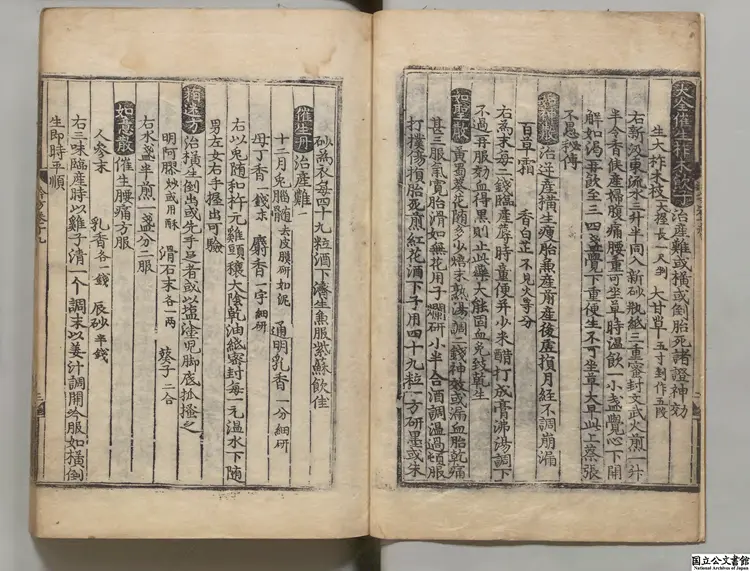 大全催生柞木飲子治産難或横或倒胎死諸證神効
生大柞木枝一大握長一尺剉 大甘草五寸剉作五段
右新汲東流水三升半同入新砂瓶紙三重密封文武火煎一升
半令香候産婦腹痛腰重可坐草時溫飲一小盞覺心下開
解如渴再飲至三四盞覺下重便生不可坐草大早此上蔡張
不愚祕傳
如神散治逆産横生瘦胎兼産前産後虛損月經不調崩漏
百草霜 香白芷不見火等分
右爲末每二錢臨産蓐時童便并少米醋打成膏沸湯調下
不過再服効血得黑則止此藥大能固血免致乾生
如聖散黃蜀葵花隨多少焙末熟湯調二錢神效或漏血胎乾痛
甚三服氣寬胎滑如無花用子爛研小半合酒調溫過頓服
打撲傷損胎死煎紅花酒下子用四十九粒一方研墨或朱
砂爲衣每四十九粒酒下濤生魚服紫蘇飲佳
催生丹治産難一
十二月兔腦髓去皮膜研如泥 通明乳香一分細研
母丁香一錢末 麝香一字細研
右以兔隨和杵元雞頭穰大陰乾油紙密封每一元溫水下隨
男左女右手握出可驗
猫迷方治横生倒出或先手足者或以鹽塗兒脚底抓搔之
明阿膠炒或用酥 滑石末各一兩 葵子二合
右水盞半煎一盞分二服
如意散催生腰痛方服
人參末 乳香各一錢 辰砂半錢
右三味臨産時以雞子清一个調末以姜汁調開冷服如横倒
生即時平順
国立公文書館
National Archives of Japan